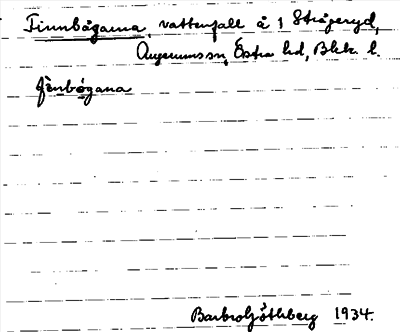 Finnbågarna, vattenfall å 1 Stråperyd,
Augerumssn, Östra hd, Blek. l.
fènbógana
Barbro Göthberg 1934.